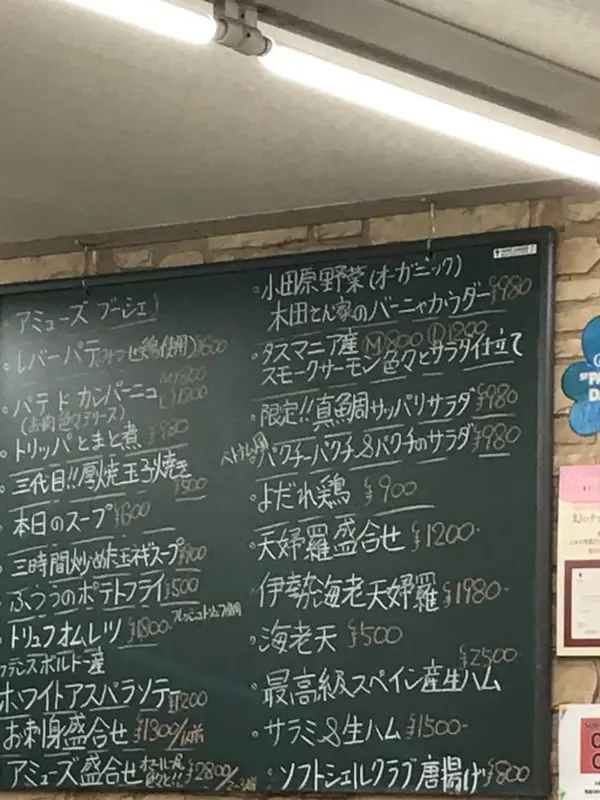 アミューズ ブーシェ
レバーパテ(みつせ鶏使用)¥500
パテ ド カンパーニュ M¥800 L¥1200
(お肉色々テリーヌ)
トリッパとまと煮 ¥980
三代目!!厚焼玉子焼き ¥500
本日のスープ ¥600
三時間炒めた玉ネギスープ
ふつうのポテトフライ ¥500
トリュフオムレツ ¥1800-
産
ホワイトアスパラソテー ¥1200
お刺身盛合せ ¥1300/1人前
アミューズ盛合せ ¥2800/2人前
小田原野菜(オーガニック)
木田とん家のバーニャカウダー ¥980
タスマニア産 M¥800 L¥1200
スモークサーモン色々とサラダ仕立て
限定!!真鯛サッパリサラダ ¥980
ベトナム風 パクチーパクチ&パクチのサラダ ¥980
よだれ鶏 ¥900
天婦羅盛合せ ¥1200-
伊勢海老天婦羅 ¥1980-
海老天 ¥500
¥2500-
最高級スペイン産生ハム
サラミ&生ハム ¥1500-
ソフトシェルクラブ唐揚げ ¥800